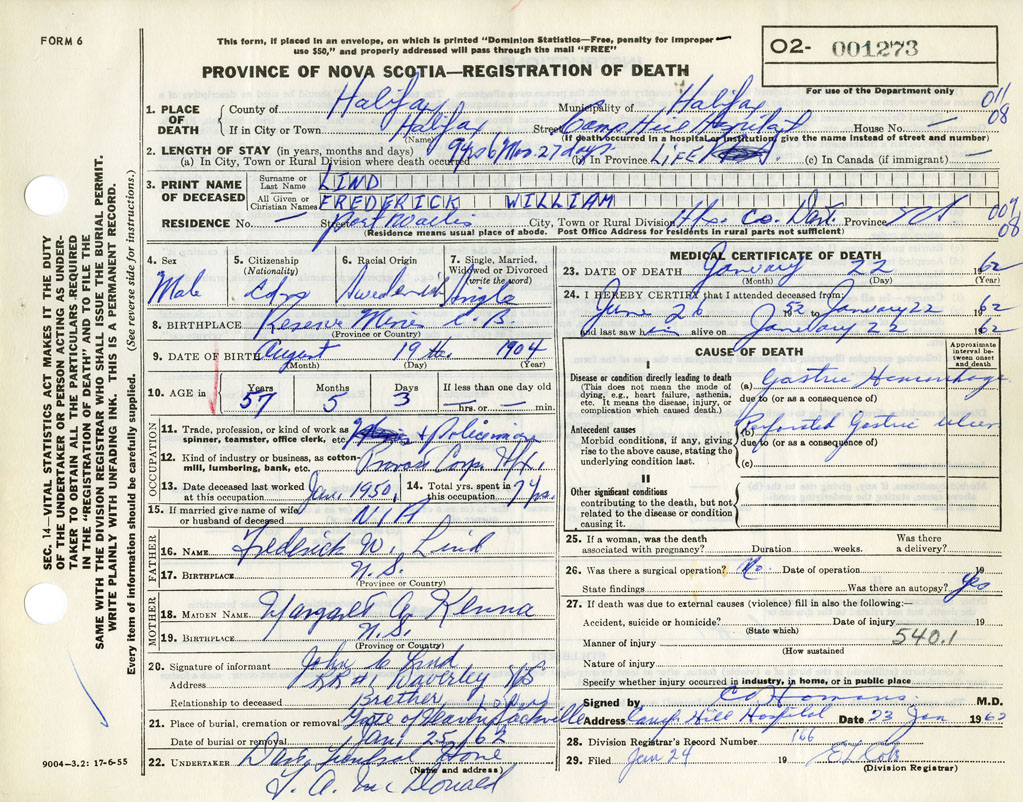 FORM 6
This form, if placed in an envelope, on which is printed "Dominion Statistics—Free, penalty for improper
use $50," and properly addressed will pass through the mail "FREE"
O2- 001273
For use of the Department only
PROVINCE OF NOVA SCOTIA—REGISTRATION OF DEATH
011
08
1. PLACE OF DEATH
County of Halifax Municipality of Halifax
If in City or Town Halifax Street Camp Hill Hospital House No. —
(Name) (If death occurred in a hospital or institution, give the name instead of street and number)
2. LENGTH OF STAY (in years, months and days)
(a) In City, Town or Rural Division where death occurred 9 yrs 6 Mos. 27 days (b) In Province LIFE (c) In Canada (if immigrant) —
3. PRINT NAME OF DECEASED
Surname or Last Name LIND
All Given or Christian Names FREDERICK WILLIAM
RESIDENCE No. — Street Port Wallis City, Town or Rural Division Hfx. Co. Dart. Province NS
009
08
(Residence means usual place of abode. Post Office Address for residents in rural parts not sufficient)
4. Sex Male
5. Citizenship (Nationality) Cdn
6. Racial Origin Swedish
7. Single, Married, Widowed or Divorced (write the word) Single
8. BIRTHPLACE Reserve Mines C.B.
(Province or Country)
9. DATE OF BIRTH August 19th. 1904
(Month) (Day) (Year)
10. AGE in Years 57 Months 5 Days 3 If less than one day old
hrs. or min.
OCCUPATION
11. Trade, profession, or kind of work as spinner, teamster, office clerk, etc. policeman
12. Kind of industry or business, as cotton-mill, lumbering, bank, etc. Provost Corps Hfx.
13. Date deceased last worked at this occupation Jan. 1950.
14. Total yrs. spent in this occupation 7 yrs.
15. If married give name of wife or husband of deceased N/A
FATHER
16. NAME Frederick W. Lind
17. BIRTHPLACE N.S.
(Province or Country)
MOTHER
18. MAIDEN NAME Margaret A. Kenna
19. BIRTHPLACE N.S.
(Province or Country)
20. Signature of informant John C Lind
Address RR #1 Waverley NS
Relationship to deceased Brother
21. Place of burial, cremation or removal Gate of Heaven Sackville
Date of burial or removal Jan. 25/62
22. UNDERTAKER Funeral Home
(Name and address)
T. A. McDonald
9004—3.2: 17-6-55
SEC. 14—VITAL STATISTICS ACT MAKES IT THE DUTY
OF THE UNDERTAKER OR PERSON ACTING AS UNDER-
TAKER TO OBTAIN ALL THE PARTICULARS REQUIRED
IN THE "REGISTRATION OF DEATH" AND TO FILE THE
SAME WITH THE DIVISION REGISTRAR WHO SHALL ISSUE THE BURIAL PERMIT.
WRITE PLAINLY WITH UNFADING INK. THIS IS A PERMANENT RECORD.
Every item of information should be carefully supplied. (See reverse side for instructions.)
MEDICAL CERTIFICATE OF DEATH
23. DATE OF DEATH January 22 1962
(Month) (Day) (Year)
24. I HEREBY CERTIFY that I attended deceased from
June 26 1952 to January 22 1962
and last saw him alive on January 22 1962
CAUSE OF DEATH
Approximate interval between onset and death
I
Disease or condition directly leading to death
(This does not mean the mode of dying, e.g., heart failure, asthenia, etc. It means the disease, injury, or complication which caused death.)
(a) Gastric Hemorrhage
due to (or as a consequence of)
Antecedent causes
Morbid conditions, if any, giving rise to the above cause, stating the underlying condition last.
(b) Perforated Gastric Ulcer
due to (or as a consequence of)
(c)
II
Other significant conditions
contributing to the death, but not related to the disease or condition causing it.
25. If a woman, was the death associated with pregnancy? Duration weeks. Was there a delivery?
26. Was there a surgical operation? No. Date of operation 19
State findings Was there an autopsy? Yes
27. If death was due to external causes (violence) fill in also the following:—
Accident, suicide or homicide? Date of injury 19
(State which)
540.1
Manner of injury
(How sustained
Nature of injury
Specify whether injury occurred in industry, in home, or in public place
Signed by C O Homans. M.D.
Address Camp Hill Hospital Date 23 Jan 1962
28. Division Registrar's Record Number 166
29. Filed Jan 24 19
(Division Registrar)